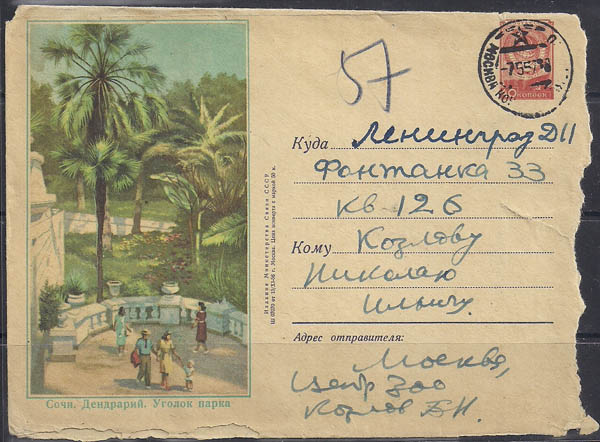 57
МОСКВА
-7.5.57
КОПЕЕК
Куда Ленинград Д11
Фонтанка 33
кв 126
Кому Козлову
Николаю
Ильичу.
Адрес отправителя:
Москва,
Центр Зоо
Козлов Б Н.
Издание Министерства Связи СССР.
г. Москва. Цена конверта с маркой 50 к.
Сочи. Дендрарий. Уголок парка